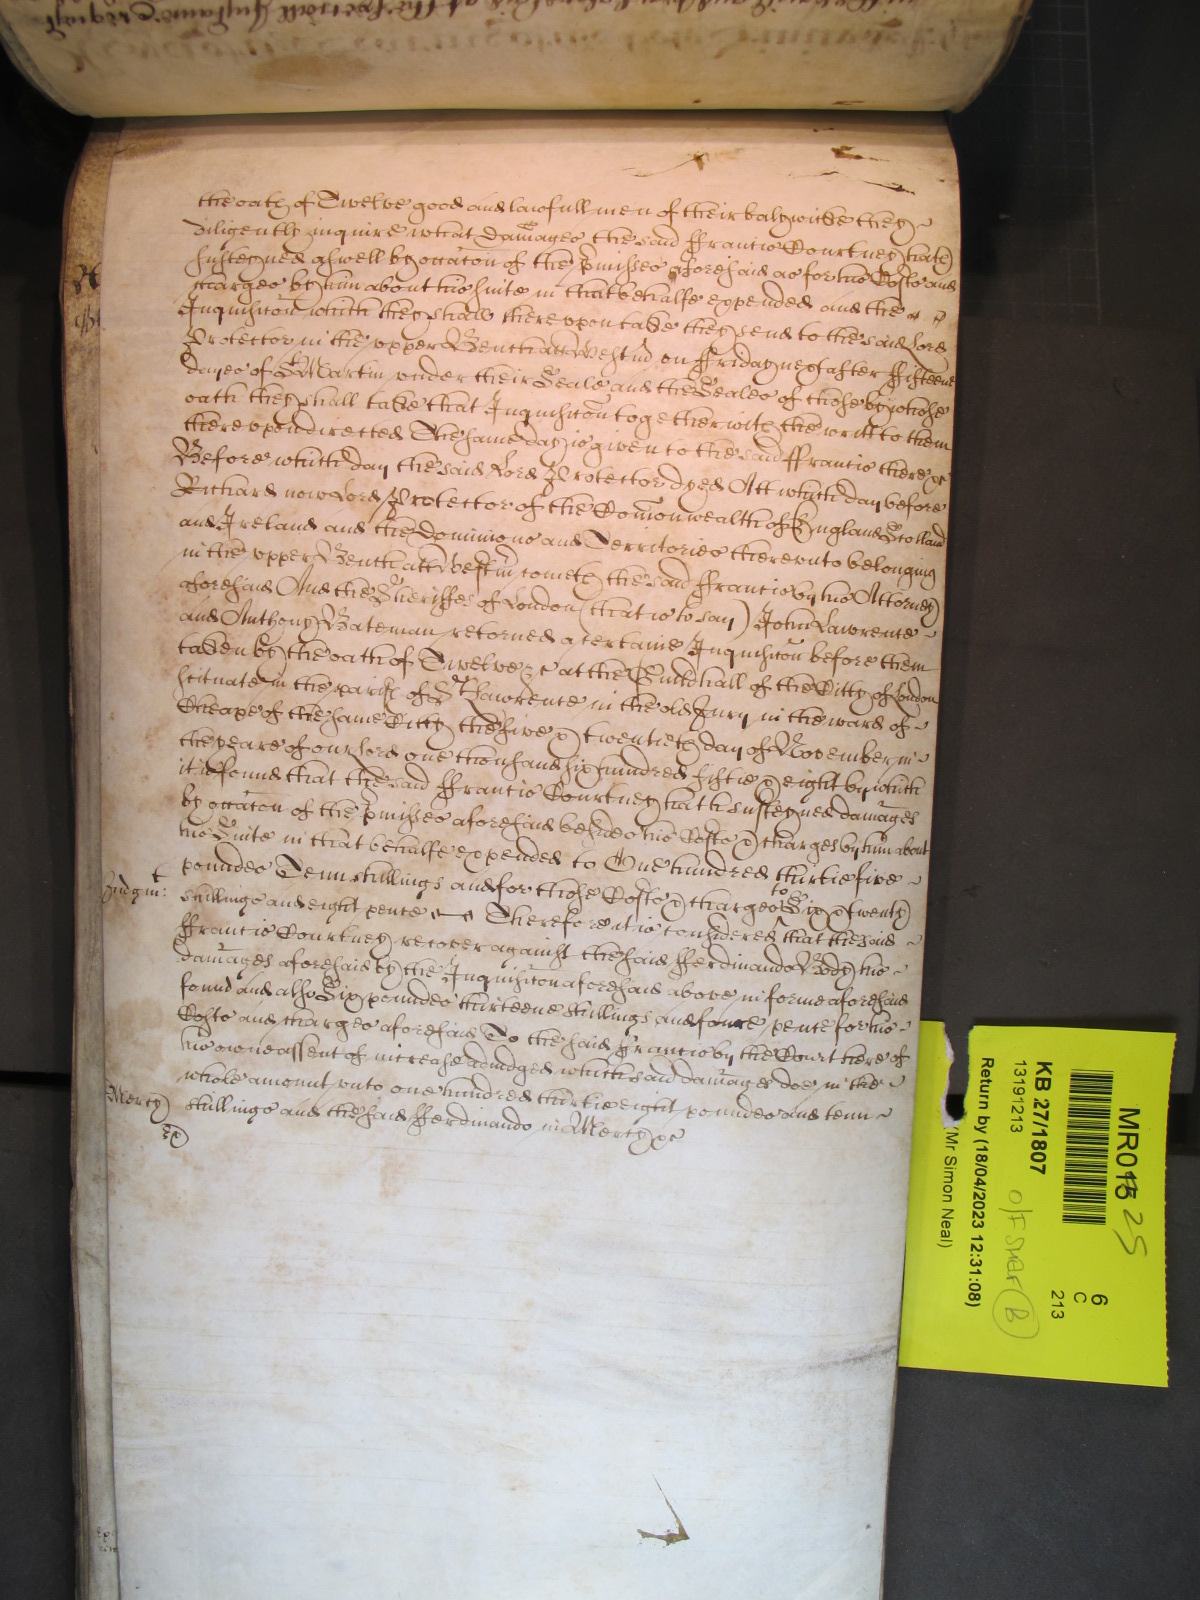 the oath of Twelve good and lawfull men of their balywicke they
diligently inquire what Damages the said Ffrancis Courtney hath
susteyned aswell by occacon of the pmisses aforesaid as for his Costs and
charges by him about his suite in that behalfe expended and the
Inquisicon which they shall thereupon take they send to the said Lord
Protector in the upper Bench att Westm on Ffriday next after Ffifteene
dayes of St Martin under their Seale and the Seales of those by whose
oath they shall take that Inquisicon together with the writt to them
thereupon directed The same day is given to the said Ffrancis there &c
Before which day the said Lord Protector dyed Att which day before
Richard now Lord Protector of the Comonwealth of England Scotland
and Ireland and the Dominions and Territories thereunto belonging
in the upper Bench att Westm cometh the said Ffrancis by his Attorney
aforesaid And the Sheriffes of London (that is to say) John Lawrence
and Anthony Bateman retorned a certaine Inquisicon before them
taken by the oath of Twelve &c at the Guildhall of the Citty of London
scituate in the parish of St Lawrence in the old Jury in the ward of
Cheape of the same Citty the five & twentieth day of November in
the yeare of our Lord one thousand six hundred fiftie & eight by which
it is found that the said Ffrancis Courtney hath susteyned damages
by occacon of the pmisses aforesaid besides his Costs & charges by him about
his Suite in that behalfe expended to One hundred thirtie five
pounds Tenn shillings and for those Costs & charges to Six & twenty
Judgmt: shillings and eight pence Therefore it is considered that the said
Ffrancis Courtney recover against the said Fferdinando Body his
damages aforesaid by the Inquisicon aforesaid above in forme aforesaid
found and also Six pounds thirteene shillings and foure pence for his
Costs and charges aforesaid To the said Ffrancis by the Court here of
his owne assent of increase adiudged which said damages doe in the
whole amount unto one hundred thirtie eight pounds and tenn
Mercy shillings and the said Fferdinando in Mercy &c
MR01 25
6
C
213
KB 27/1807
13191213
O/F Shelf (B)
Return by (18/04/2023 12:31:08)
(Mr Simon Neal)